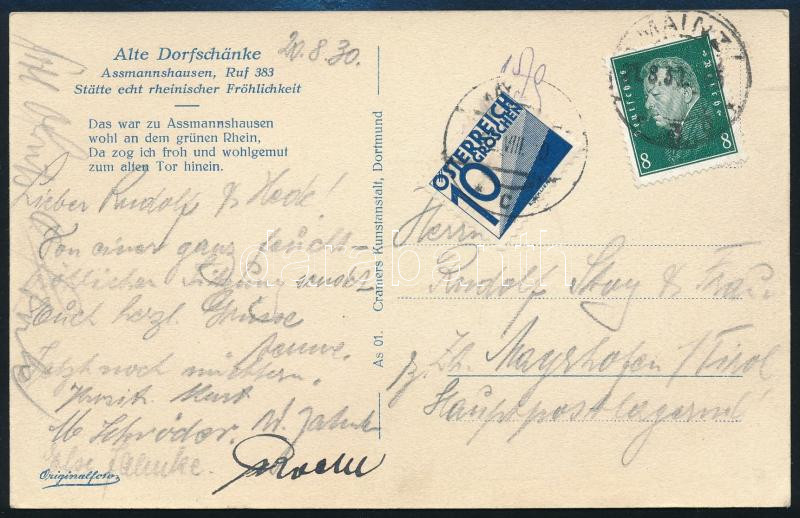 Alte Dorfschänke
Assmannshausen, Ruf 383
Stätte echt rheinischer Fröhlichkeit
20.8.30.
Das war zu Assmannshausen
wohl an dem grünen Rhein,
Da zog ich froh und wohlgemut
zum alten Tor hinein.
Lieber Rudolf & Hede!
Von einer ganz feucht-
fröhlichen Sitzung sendet
Euch herzl. Grüsse
Jetzt noch nüchtern.
Schröder. W. Jahnke
Jahnke.
Originalfoto
As 01. Cramers Kunstanstalt, Dortmund
MAINZ
Deutsches Reich
8 8
ÖSTERREICH
10 GROSCHEN
VIII
Herrn
Rudolf & Frau
z. Zt. Mayrhofen / Tirol
Hauptpostlagernd!
darabanth.com